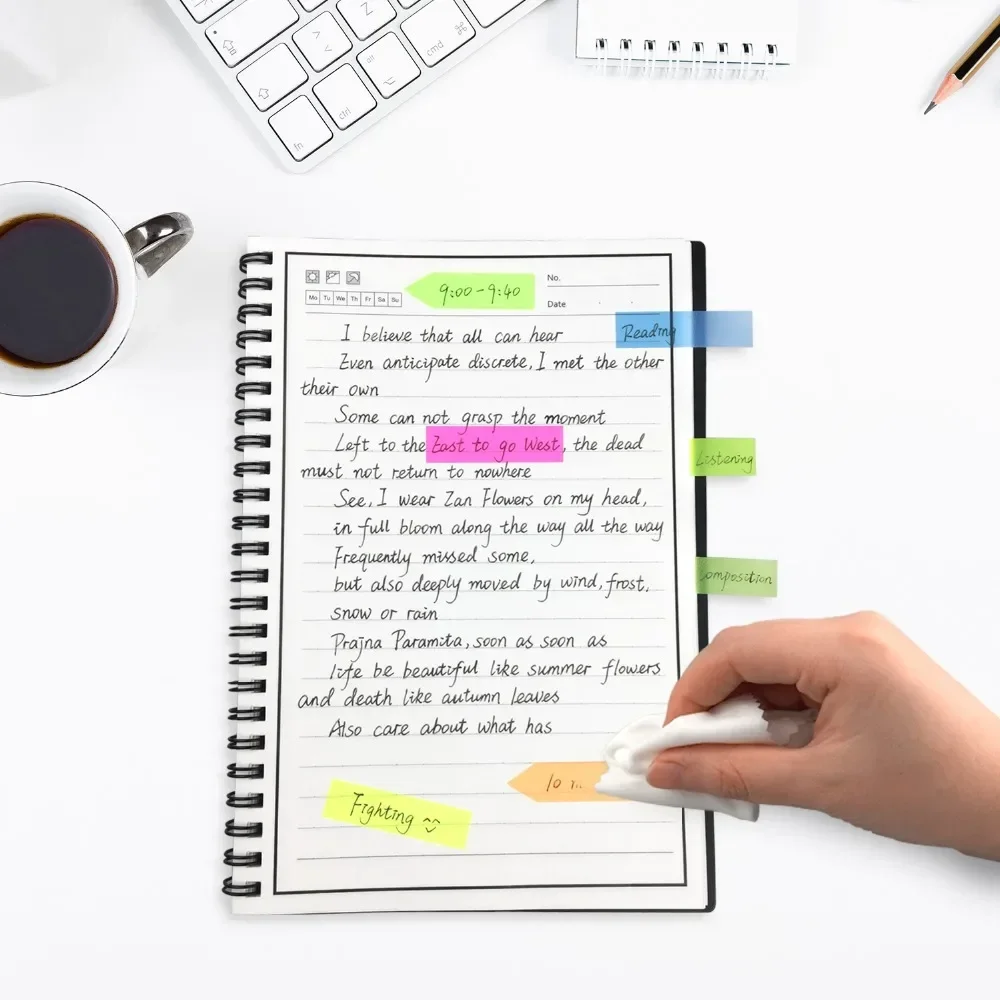 Z
cmd ⌘
alt
⌥
ctrl
fn
No.
Mo Tu We Th Fr Sa Su
9:00-9:40
Date
Reading
I believe that all can hear
Even anticipate discrete, I met the other
their own
Some can not grasp the moment
Left to the East to go West, the dead
must not return to nowhere
Listening
See, I wear Zan Flowers on my head,
in full bloom along the way all the way
Frequently missed some,
but also deeply moved by wind, frost,
Composition
snow or rain
Prajna Paramita, soon as soon as
life be beautiful like summer flowers
and death like autumn leaves
Also care about what has
10
Fighting